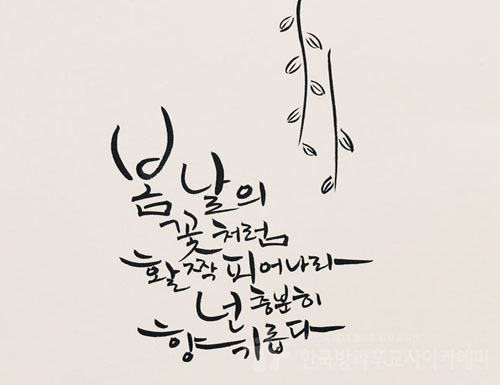 봄날의
꽃처럼
활짝 피어나라
넌 충분히
향기롭다
한국방과후교사아카데미